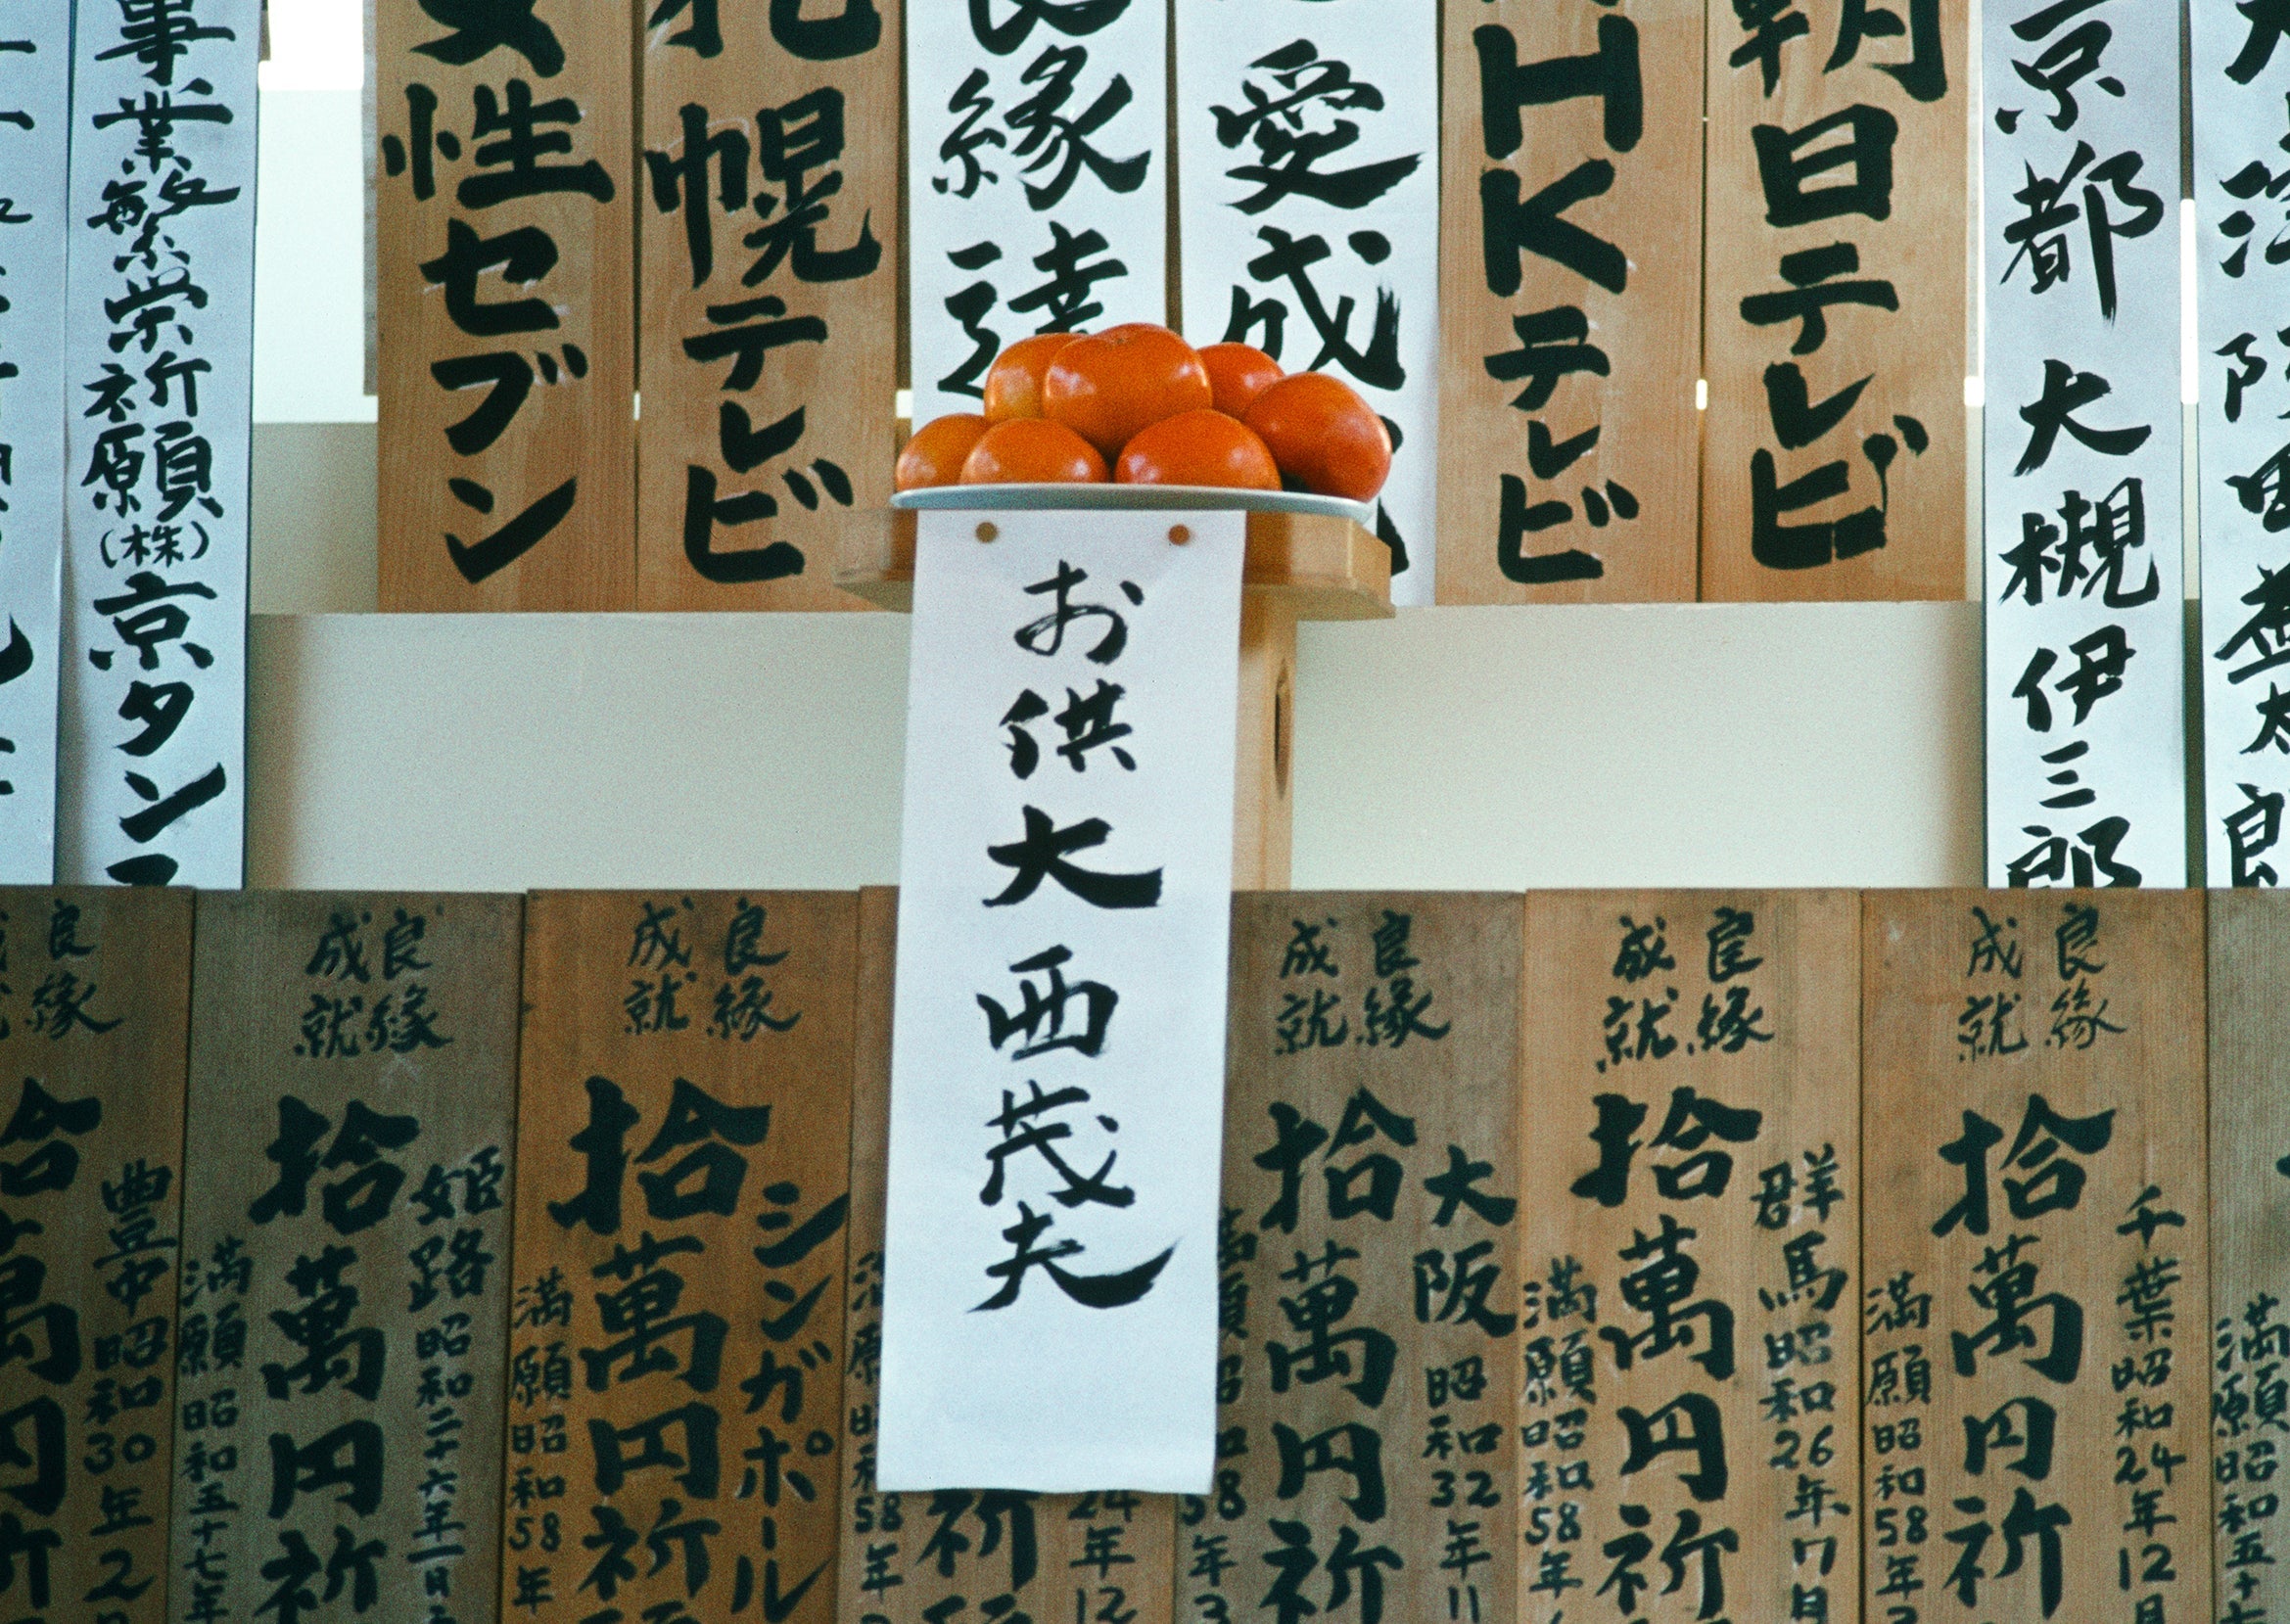 大津
阪田益太良
京都
大槻伊三郎
朝日テレビ
HKテレビ
愛成
良縁達
札幌テレビ
女性セブン
事業繁栄祈願(株)京タンス
お供
大西茂夫
良縁
成就
千葉昭和24年12月
拾萬円祈
満願昭和58年
良縁
成就
群馬昭和26年7月
拾萬円祈
満願昭和58年
良縁
成就
大阪昭和32年11
拾萬円祈
満願昭和58年3
24年12
祈
58年
良縁
成就
シンガポール
拾萬円祈願
満願昭和58年
良縁
成就
姫路昭和二十六年一月
拾萬円祈
満願昭和五十七年
良縁
成就
豊中昭和30年2月
拾萬円祈
満願昭和五十